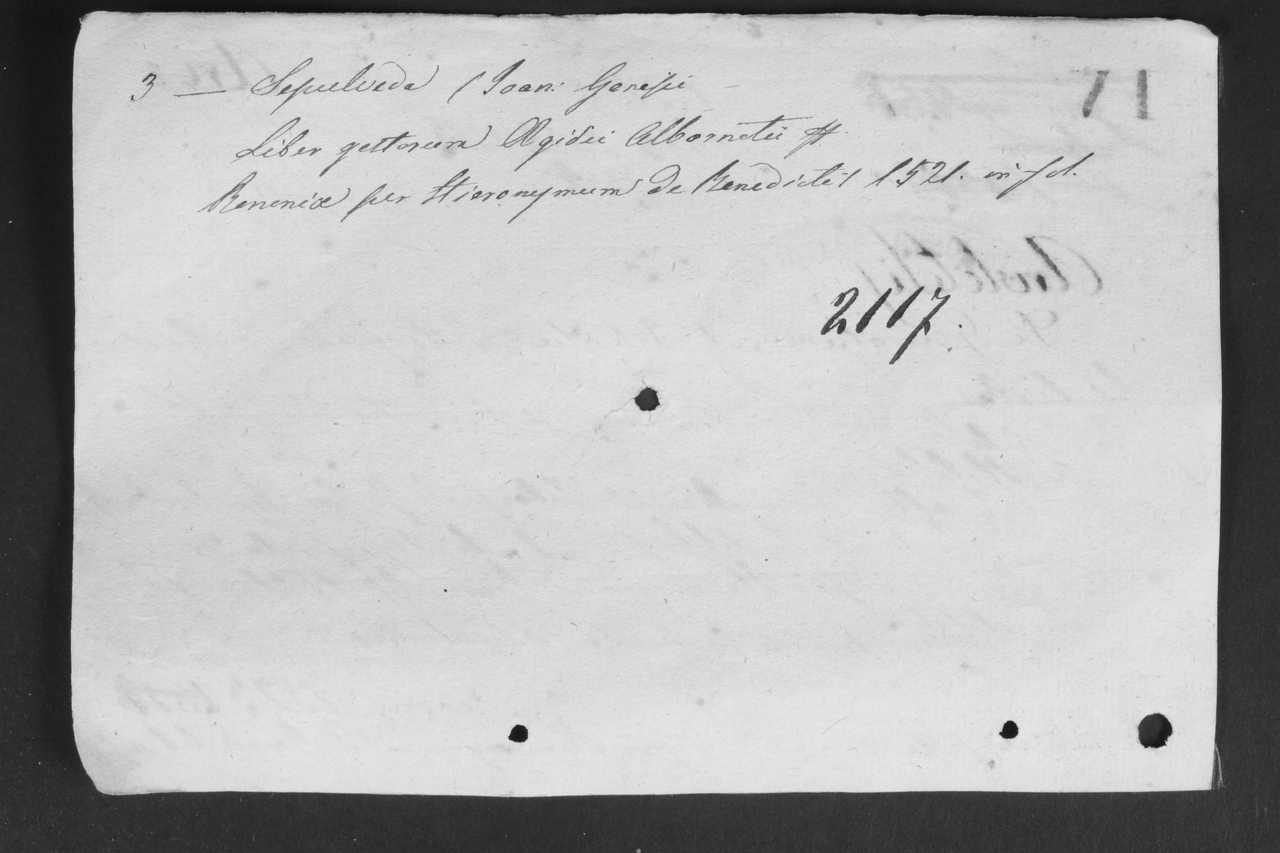 3 — Sepulveda (Joan: Genesii
Liber gestorum Ægidii Albornotii ff.
Bononiæ per Hieronymum de Benedictis 1521. in fol.
2117.